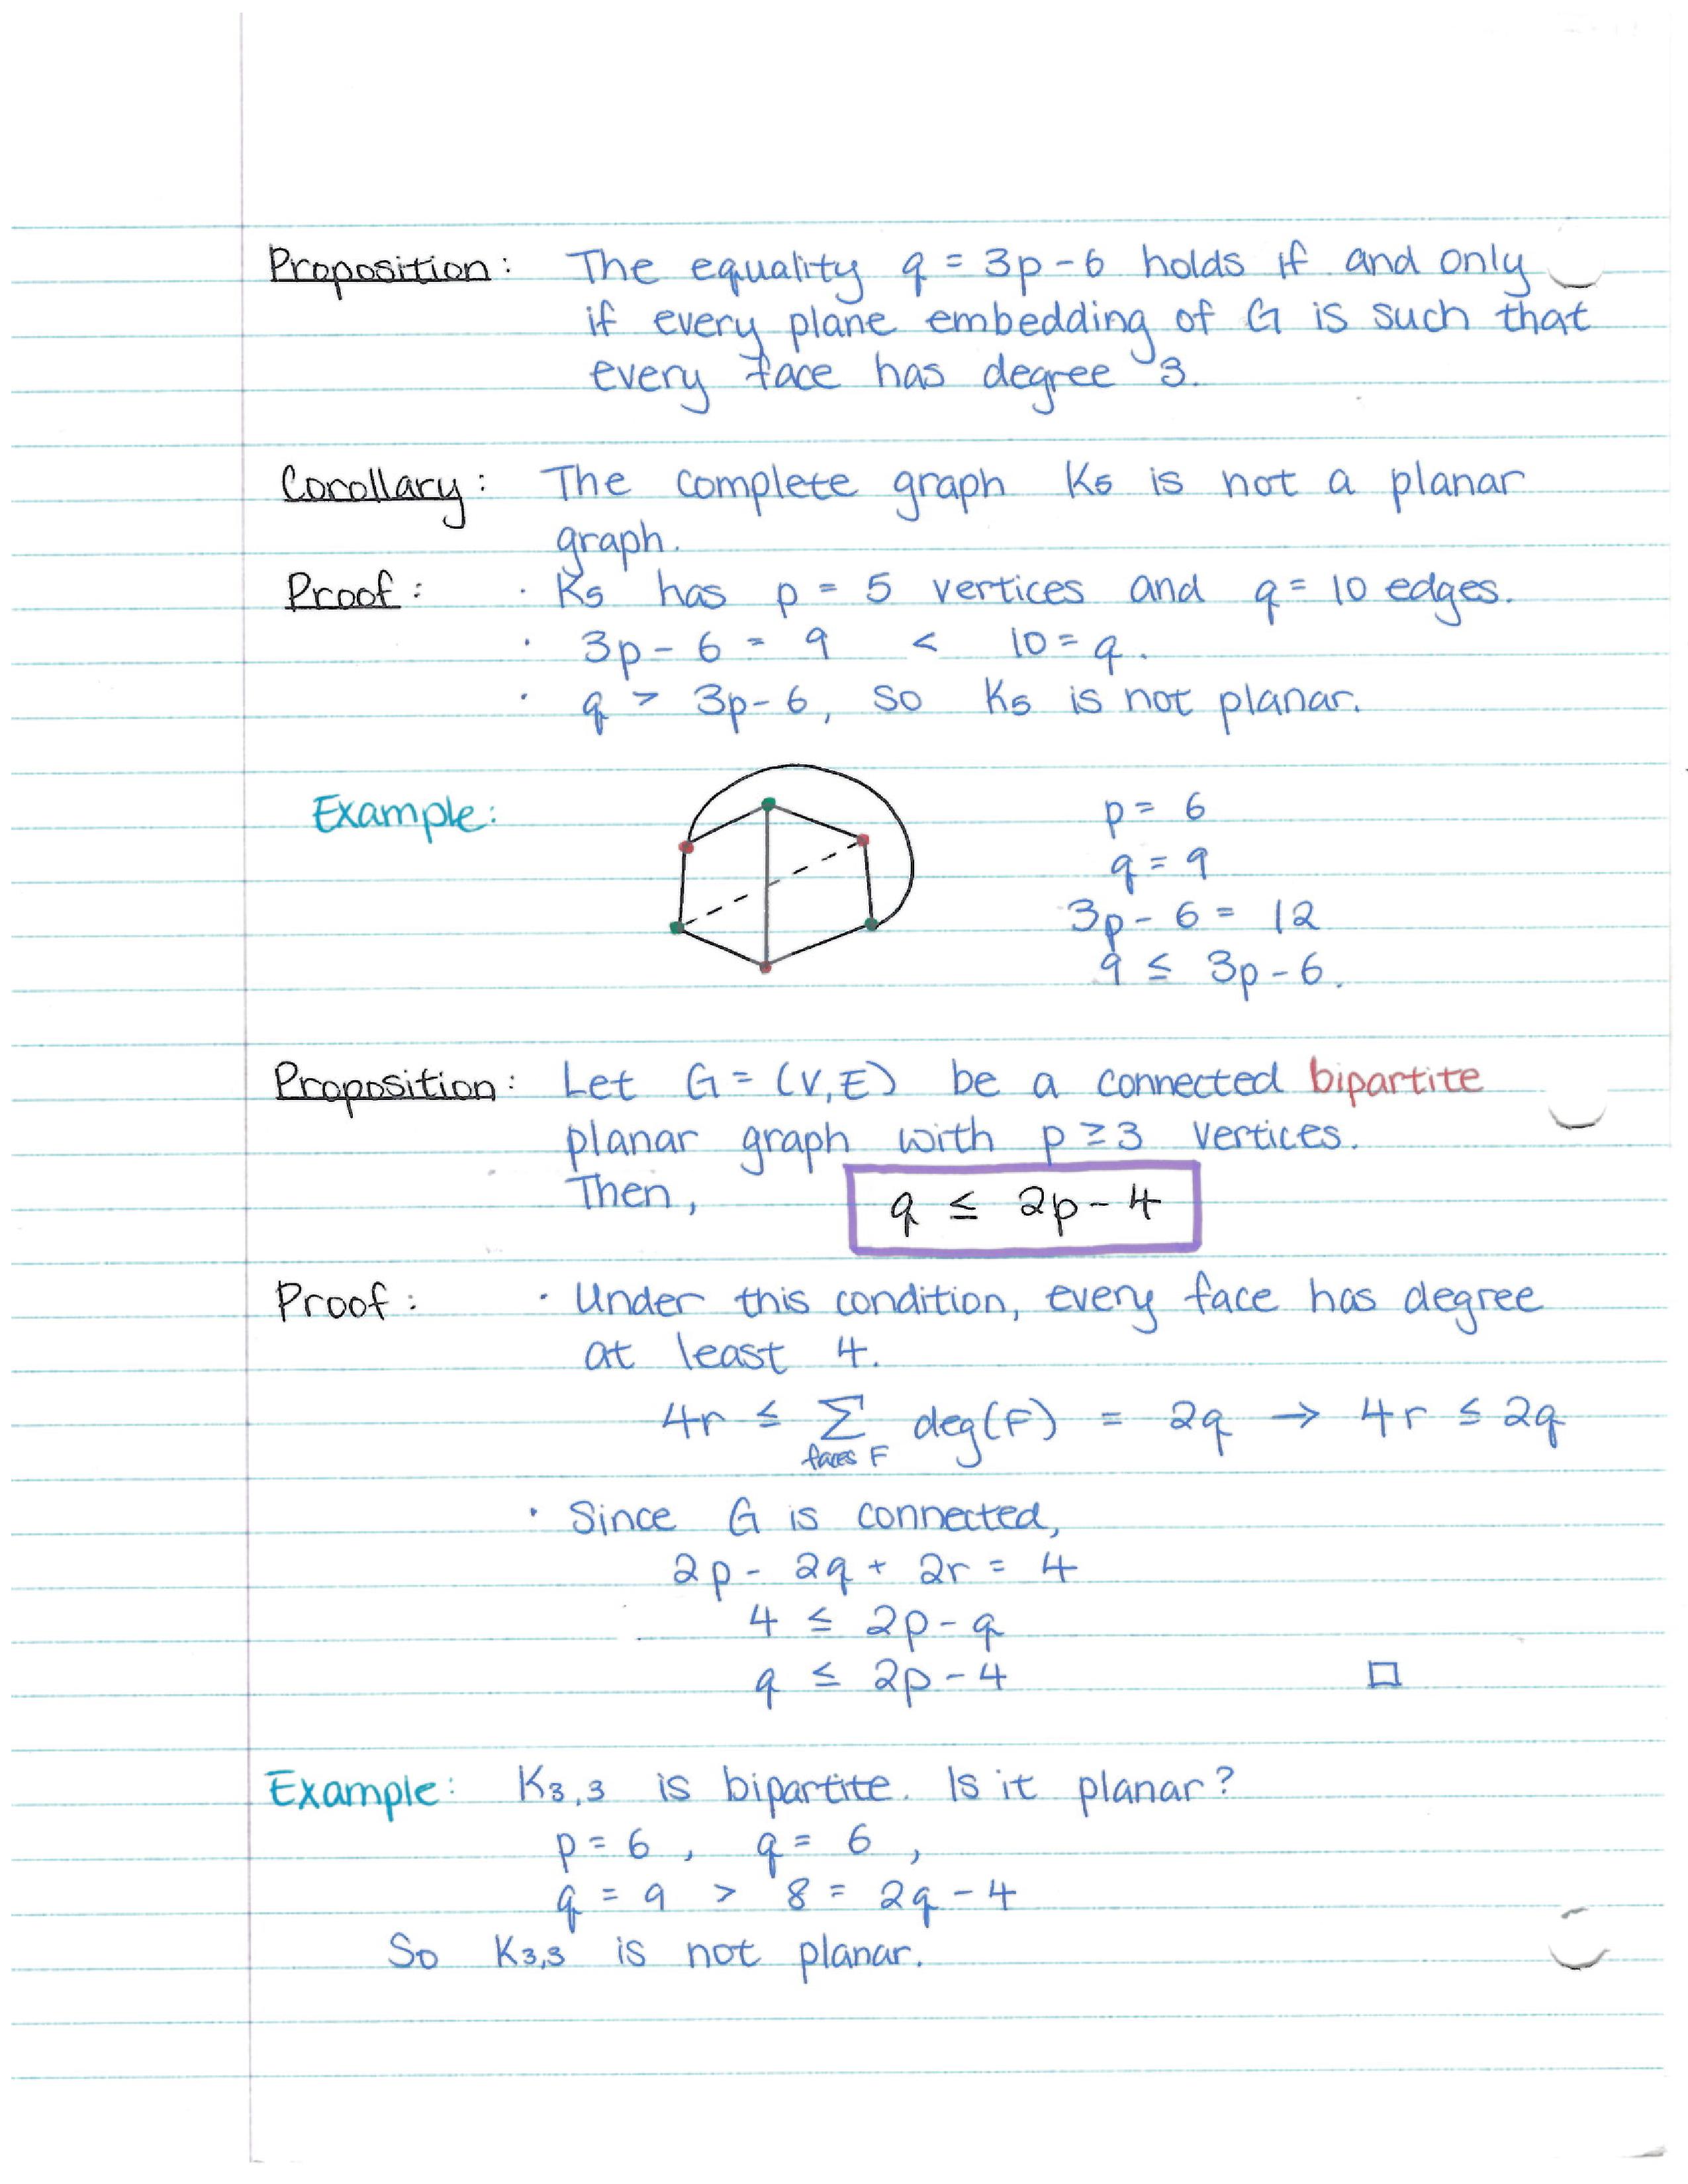 Proposition: The equality q = 3p - 6 holds if and only
if every plane embedding of G is such that
every face has degree 3.
Corollary: The complete graph K5 is not a planar
graph.
Proof: · K5 has p = 5 vertices and q = 10 edges.
· 3p - 6 = 9 < 10 = q.
· q > 3p - 6, so K5 is not planar.
Example:
p = 6
q = 9
3p - 6 = 12
q ≤ 3p - 6.
Proposition: Let G = (V, E) be a connected bipartite
planar graph with p ≥ 3 vertices.
Then, q ≤ 2p - 4
Proof: · Under this condition, every face has degree
at least 4.
4r ≤ Σ deg(F) = 2q → 4r ≤ 2q
faces F
· Since G is connected,
2p - 2q + 2r = 4
4 ≤ 2p - q
q ≤ 2p - 4 □
Example: K3,3 is bipartite. Is it planar?
p = 6, q = 6,
q = 9 > 8 = 2q - 4
So K3,3 is not planar.